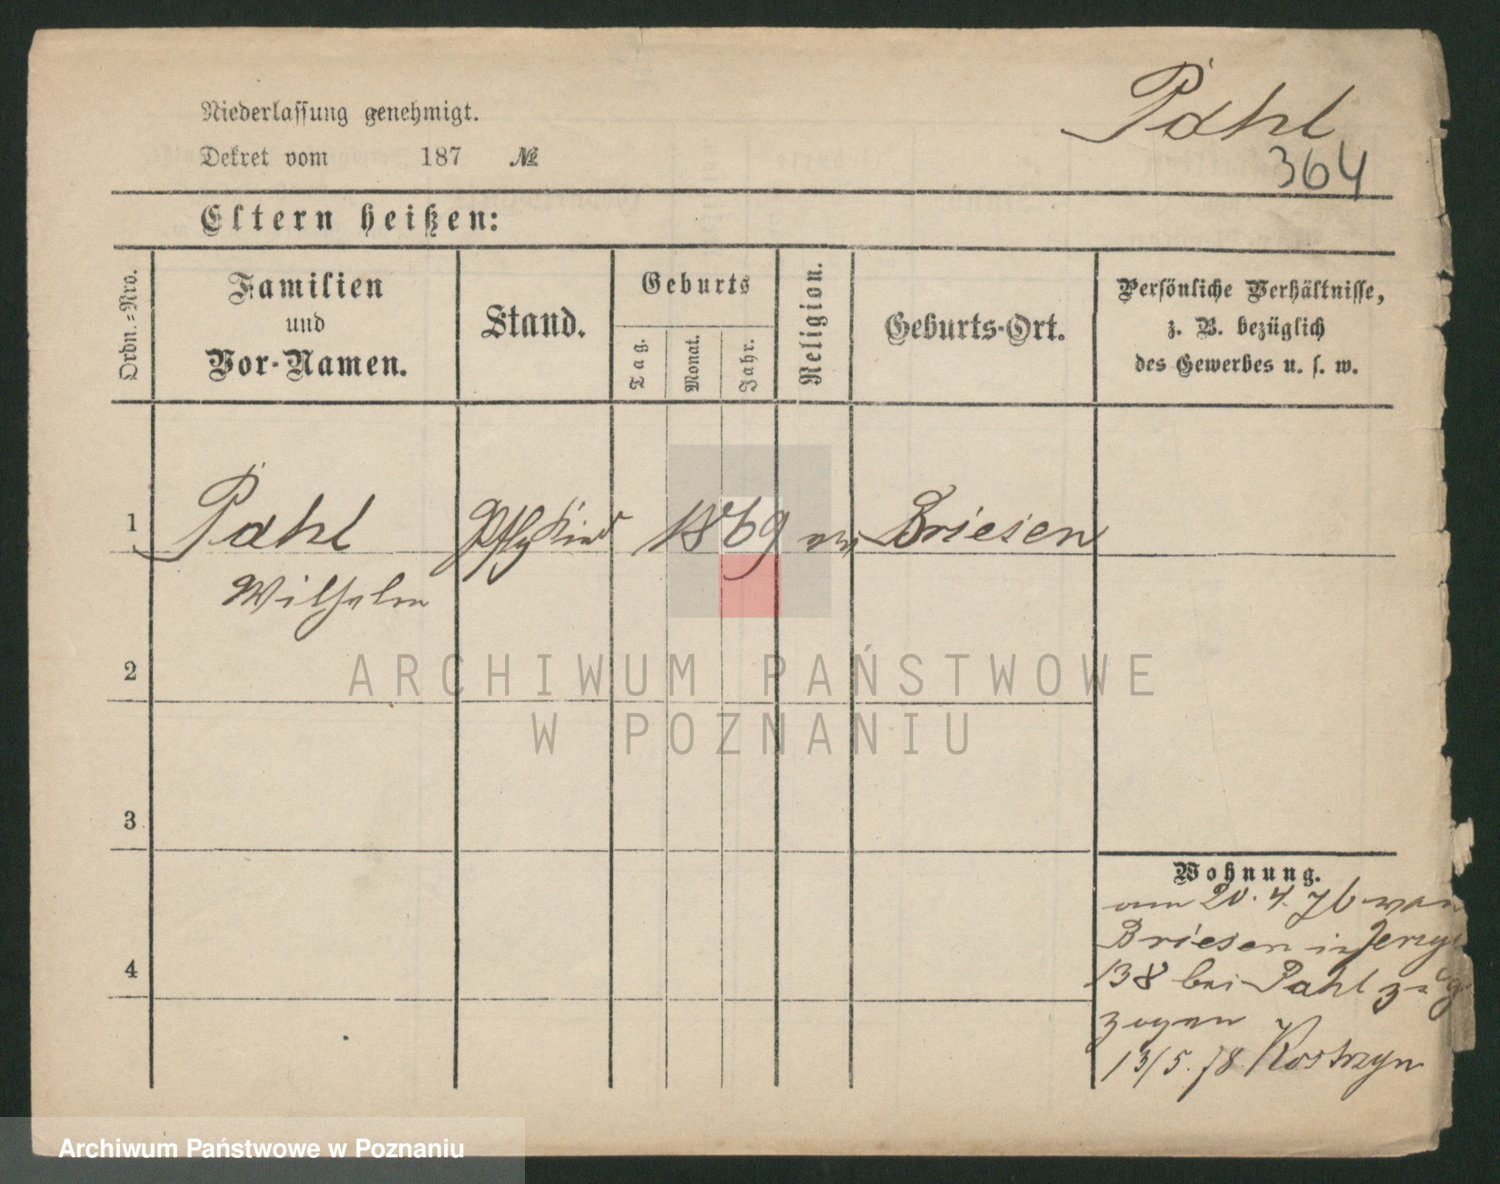 Pahl
364
Niederlassung genehmigt.
Dekret vom 187 №
Eltern heißen:
Ordn.-Nro.
Familien
und
Vor-Namen.
Stand.
Geburts
Tag.
Monat.
Jahr.
Religion.
Geburts-Ort.
Persönliche Verhältnisse,
z. B. bezüglich
des Gewerbes u. s. w.
1 Pahl 1869 Briesen
Wilhelm
2
3
4
Wohnung.
20.4.76 von
Briesen in
138 bei Pahl
zogen
13/5.78 Kostrzyn
ARCHIWUM PAŃSTWOWE
W POZNANIU
Archiwum Państwowe w Poznaniu